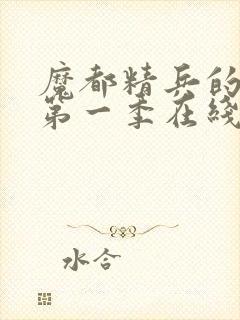 魔都精兵的
第一季在线
水合